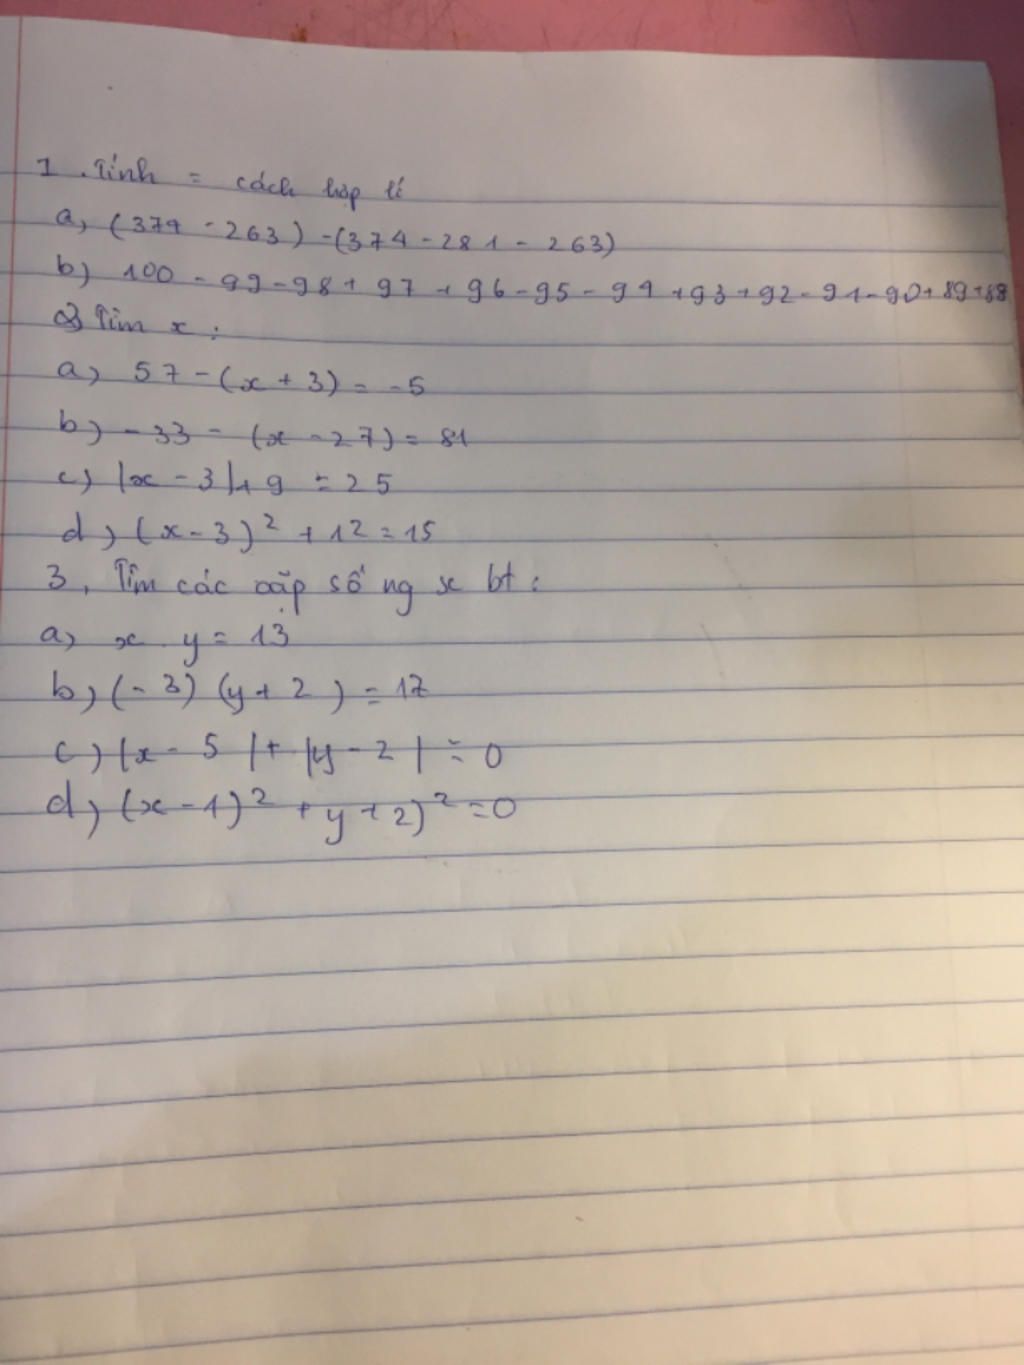 1. Tính = cách hợp lí
a, (374 - 263) - (374 - 281 - 263)
b) 100 - 99 - 98 + 97 + 96 - 95 - 94 + 93 + 92 - 91 - 90 + 89 + 88
2) Tìm x :
a) 57 - (x + 3) = -5
b) - 33 - (x - 27) = 81
c) |x - 3| + 9 = 25
d) (x - 3)² + 12 = 15
3, Tìm các cặp số ng x bt :
a) x . y = 13
b) (- 3) (y + 2) = 17
c) |x - 5| + |y - 2| = 0
d) (x - 1)² + y + 2)² = 0